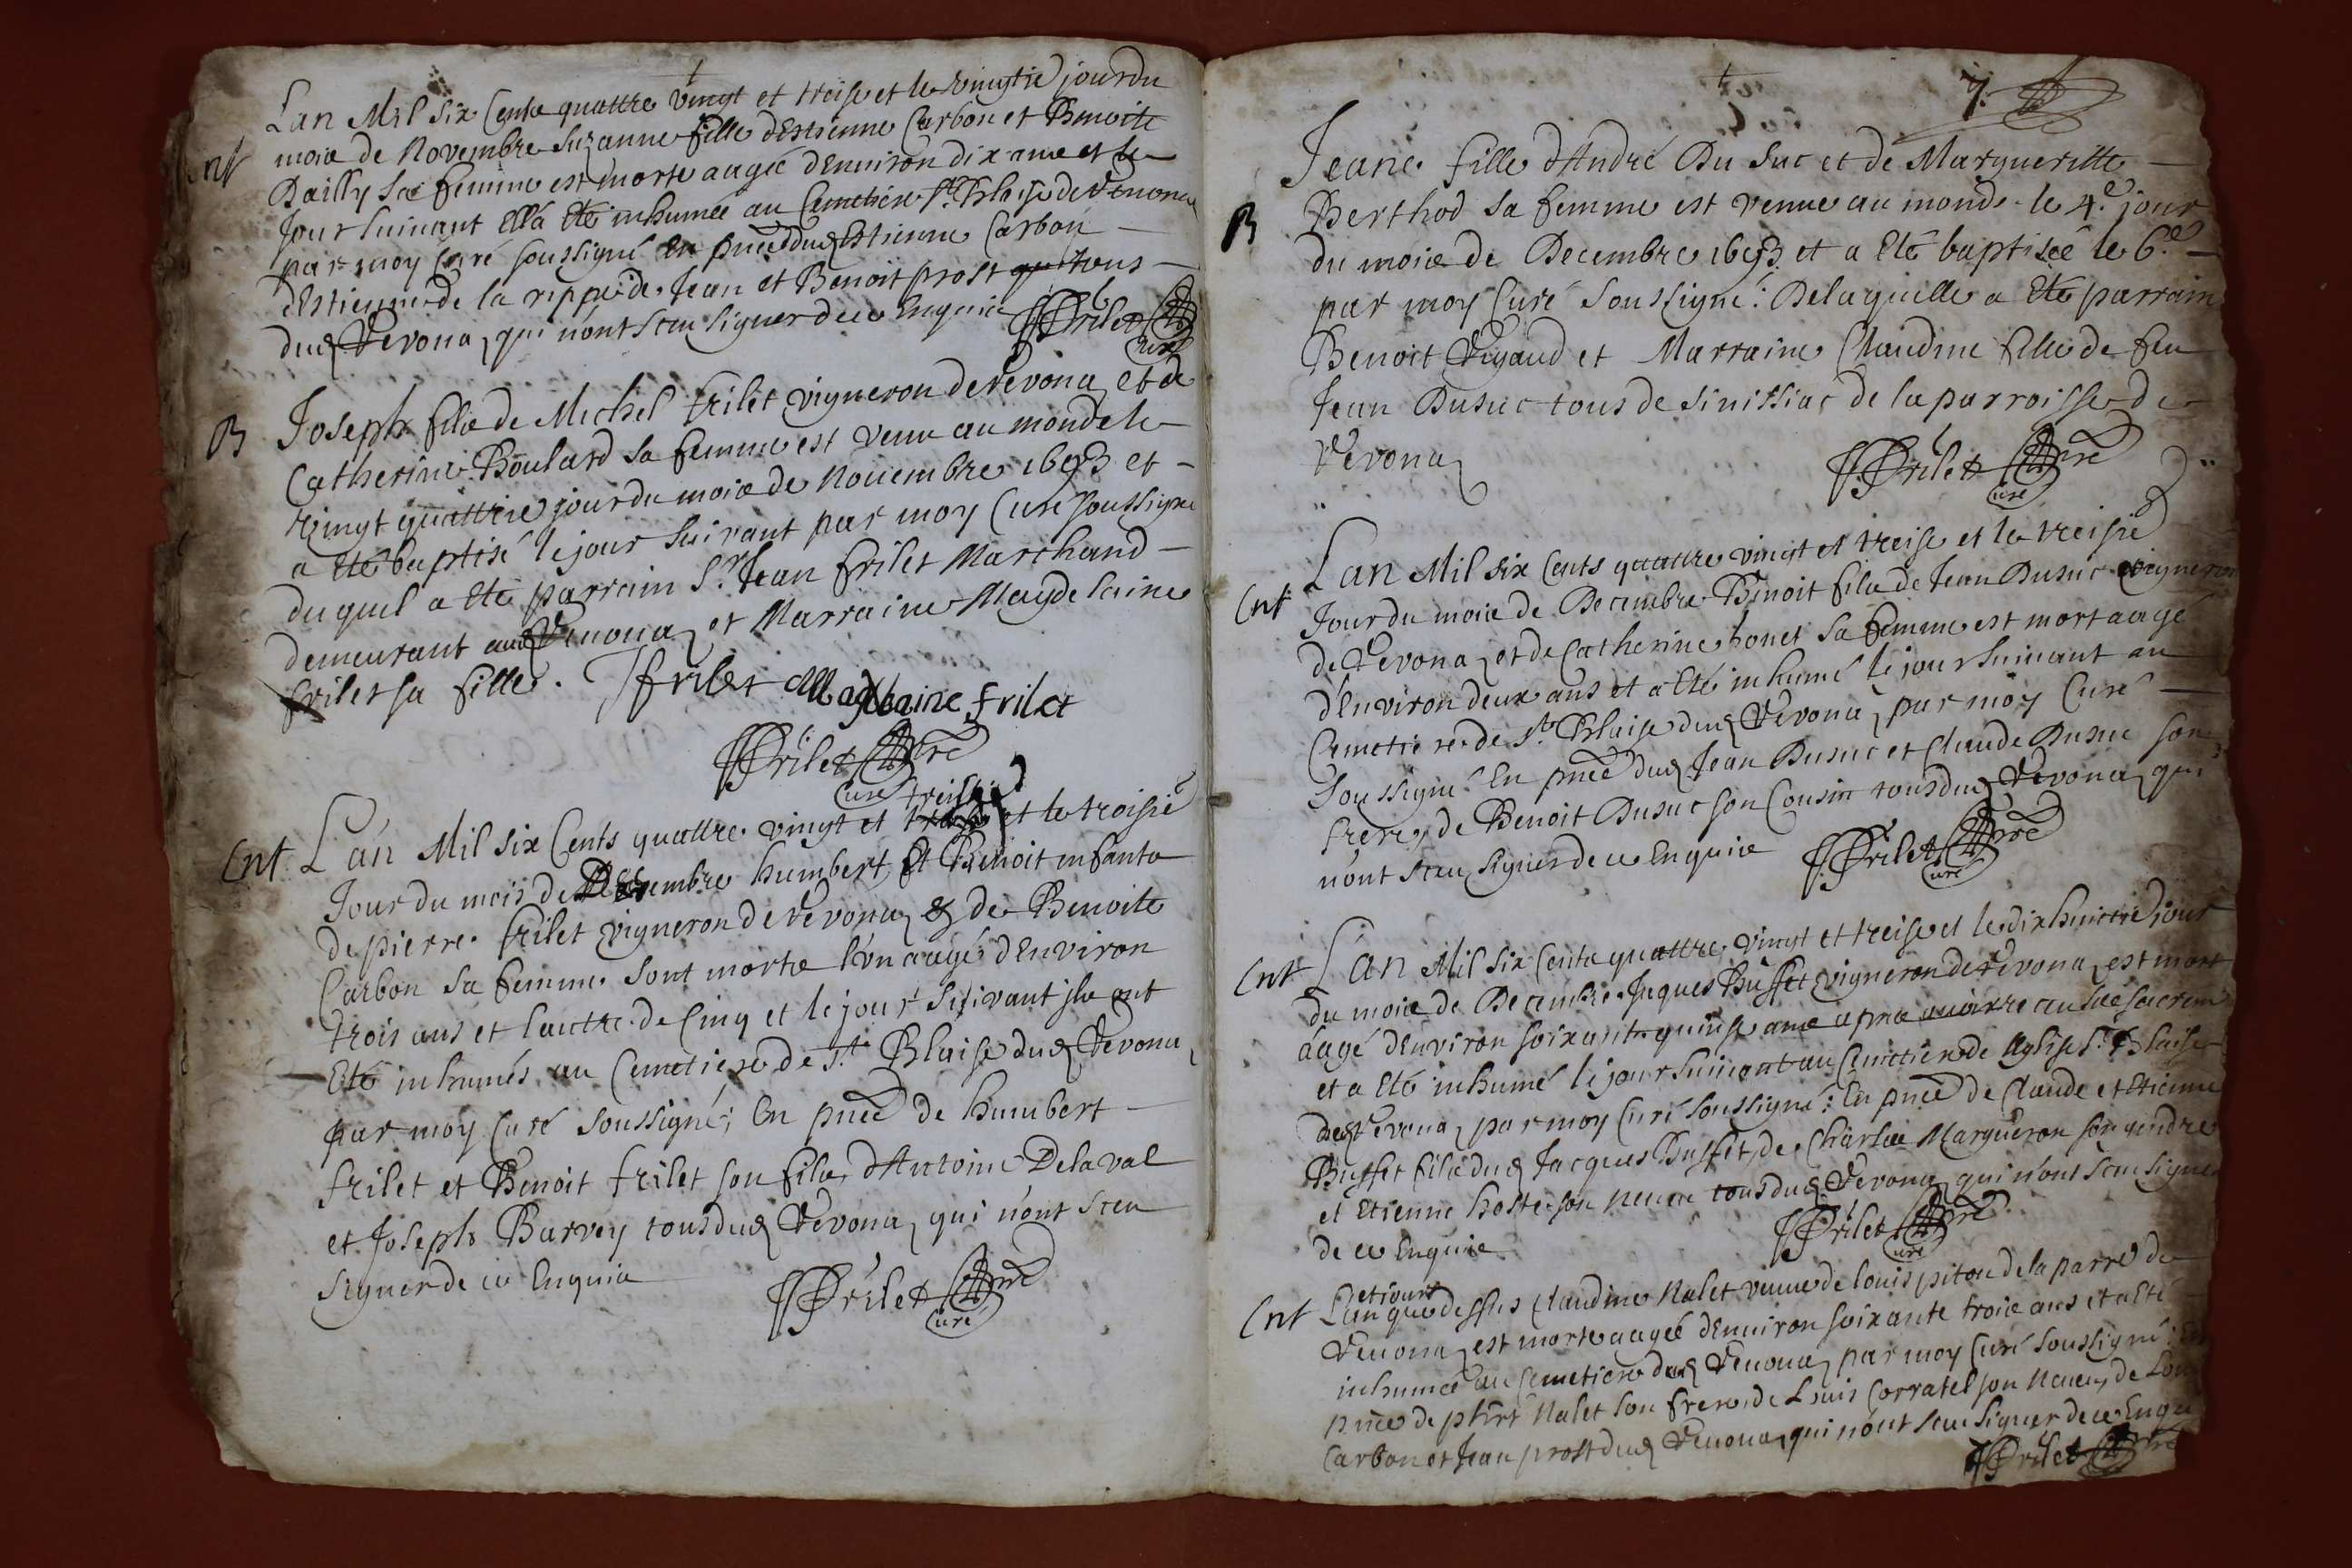 Lan Mil Six Cents quattre vingt et treise et le vingtie jour du
Ent moie de Novembre Suzanne fille d'Estienne Carbon et Benoite
Dailly Sa femme est morte aagée d'Environ dix ans et le
Jour Suivant Ella Eté inhumée au Cemetiere St. Blaise de Vevona
par moy Curé soussigné En pnce dud Estienne Carbon
d'Estienne de la rippe de Jean et Benoit prost tous
dud Vevona, qui n'ont sceu signer de ce Enquis JFrilet
Curé
B Joseph fils de Michel frilet vigneron de Vevona et de
Catherine Boulard sa femme est venu au monde le
vingt quattrie jour du moie de Novembre 1693 et
a Eté baptisé le jour suivant par moy Curé soussigné
duquel a Eté parrain Sr. Jean frilet Marchand
demeurant aud Vevona et Marraine Magdelaine
frilet sa fille. J frilet Magdelaine frilet
JFrilet pre
Curé
treise
Ent L'an Mil Six Cents quattre vingt et et le troisie
Jour du mois de Decembre humbert Et Benoit enfants
de pierre frilet vigneron de Vevona & de Benoite
Carbon sa femme sont morts l'un aagé d'Environ
trois ans et l'autre de Cinq et le jour Suivant ils ont
Eté inhumés au Cemetiere de St. Blaise dud Vevona
par moy Curé soussigné; En pnce de humbert
frilet et Benoit frilet son fils, d'Antoine Delaval
et Joseph Barvey tous dud Vevona, qui n'ont sceu
signer de ce Enquis JFrilet pre
Curé
7.
Jeane fille d'André Du Suc et de Margueritte
B Berthod sa femme est venue au monde le 4.e jour
du moie de Decembre 1693 et a Eté baptisée le 6.e
par moy Curé Soussigné: De laquelle a Eté parrain
Benoit Vigaud et Marraine Claudine fille de feu
Jean Dusuc tous de Sinissiac de la parroisse de
Vevona JFrilet pre
Curé
Lan Mil six Cents quattre vingt et treise et le treisie
Ent Jour du moie de Decembre Benoit fils de Jean Dusuc vigneron
de Vevona, et de Catherine bonet sa femme est mort aagé
d'Environ deux ans et a Eté inhumé le jour Suivant au
Cemetiere de St. Blaise dud Vevona, par moy Curé
soussigné En pnce dud Jean Dusuc et Claude Dusuc son
frere, de Benoit Dusuc son Cousin tous dud Vevona, qui
n'ont sceu signer de ce Enquis JFrilet pre
Curé
Ent L'an Mil Six Cents quattre vingt et treise et le dix huictie jour
du moie de Decembre Jaques Buffet vigneron de Vevona, est mort
aagé d'Environ soixante quinse ans apres
et a Eté inhumé le jour Suivant au Cemetiere de Eglise St. Blaise
dud Vevona, par moy Curé soussigné: En pnce de Claude et Etienne
Buffet fils dud Jacques Buffet, de Charles Margueron son gendre
et Etienne hoste son neveu tous dud Vevona, qui n'ont sceu signer
de ce Enquis JFrilet pre
Curé
et jour
Ent L'an que dessus Claudine Nalet veuve de Louis piton de la parre de
Vevona, est morte aagée d'Environ soixante trois ans et a Eté
inhumée au Cemetiere dud Vevona, par moy Curé soussigné: En
pnce de phbert Nalet son frere de Louis Corratel son neveu, de Louis
Carbon et Jean prost dud Vevona, qui n'ont sceu signer de ce Enquis
JFrilet pre